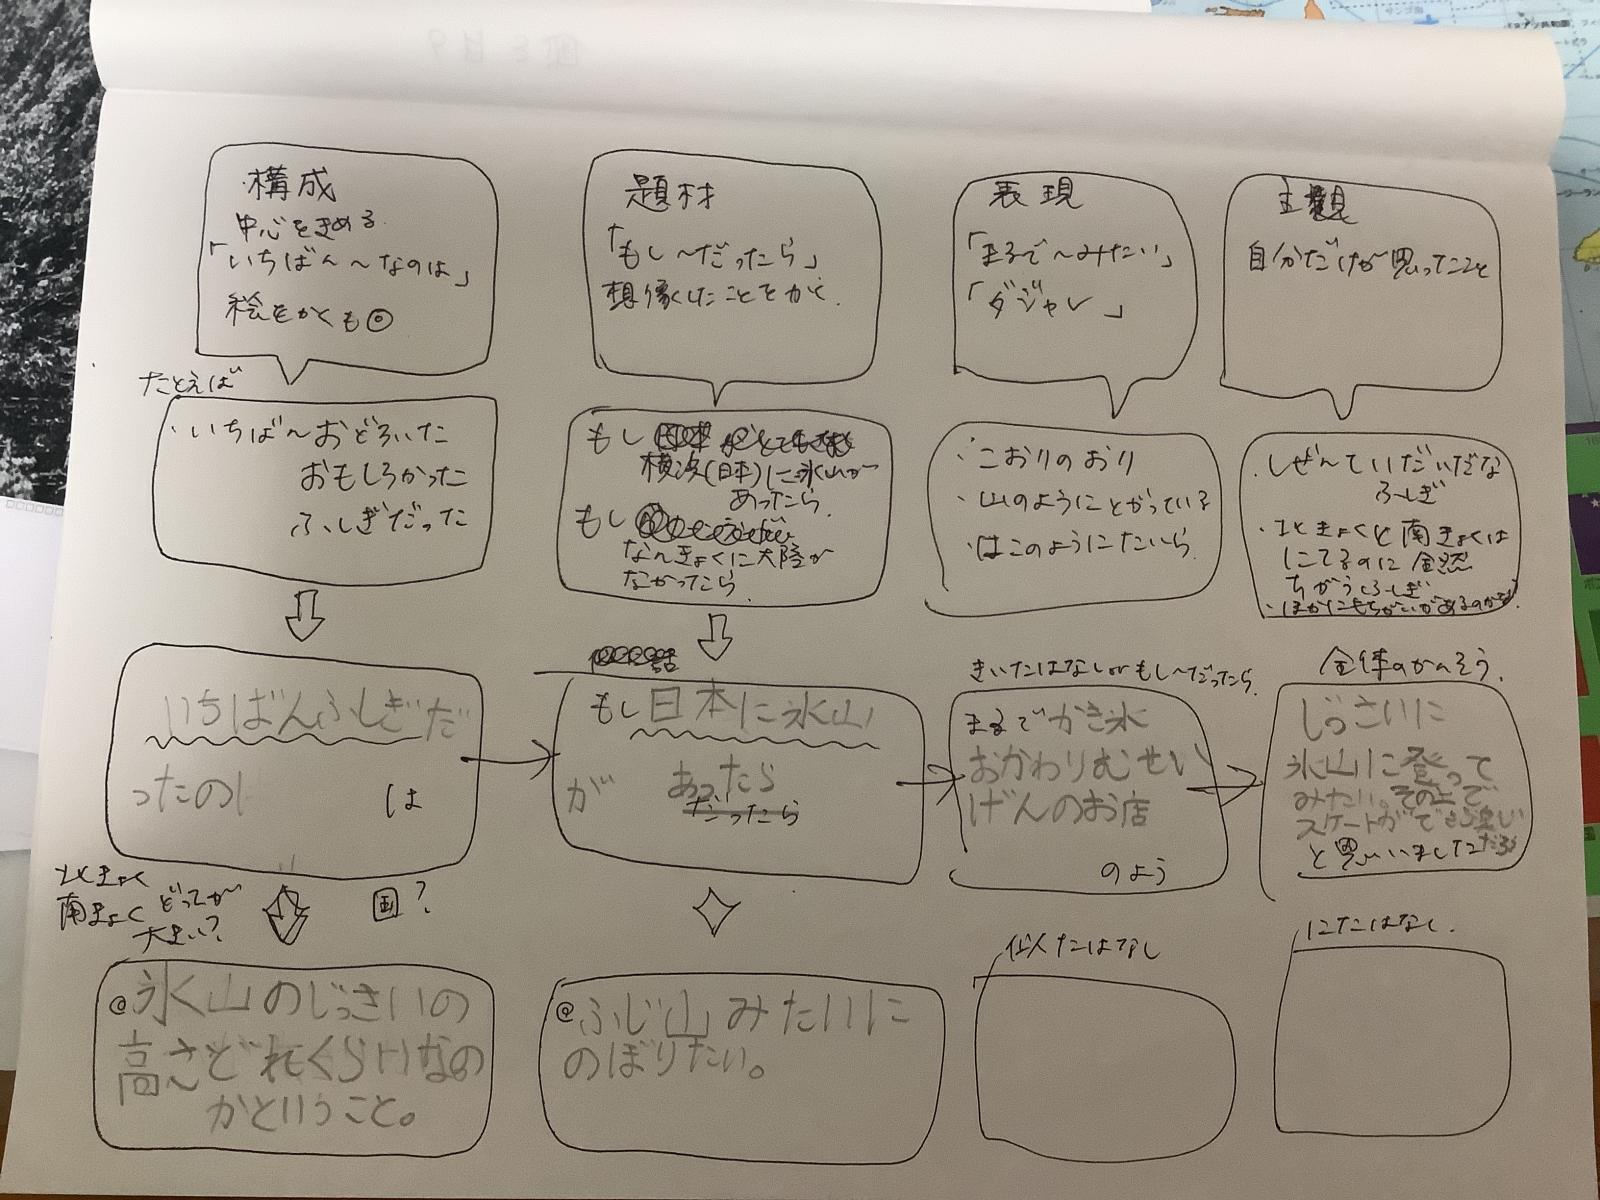 構成
中心をきめる
「いちばん〜なのは」
絵をかくも◎
題材
「もし〜だったら」
想像したことをかく.
表現
「まるで〜みたい」
「ダジャレ」
主観
自分だけが思ったこと
たとえば
・いちばんおどろいた
おもしろかった
ふしぎだった
もし
横浜(日本)に氷山が
あったら.
もし
なんきょくに大陸が
なかったら.
・こおりのおり
・山のようにとがっている
・はこのようにたいら.
・しぜんていだいだな
ふしぎ
・北きょくと南きょくは
にてるのに全然
ちがうふしぎ
・ほかにもちがいがあるのかな.
いちばんふしぎだ
ったのは
は
話
もし日本に氷山
が あったら
だったら
きいたはなしorもし〜だったら.
まるでかき氷
おかわりむせい
げんのお店
のよう
全体のかんそう.
じっさいに
氷山に登って
みたい。その上で
スケートができら楽しい
だろう
と思いました
北きょく
南きょくどっちが
大きい?
国?
@氷山のじっさいの
高さどれくらいなの
かということ。
@ふじ山みたいに
のぼりたい。
似たはなし
にたはなし.